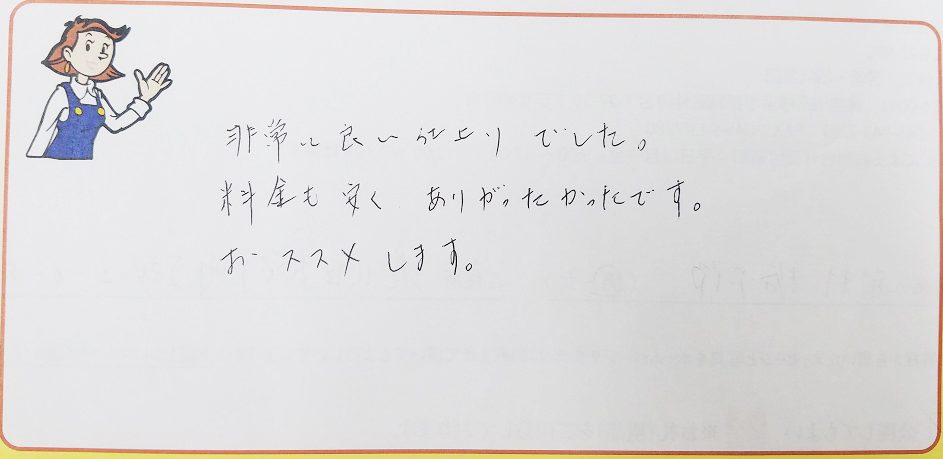 非常に良い仕上りでした。
料金も安く ありがたかったです。
おススメします。